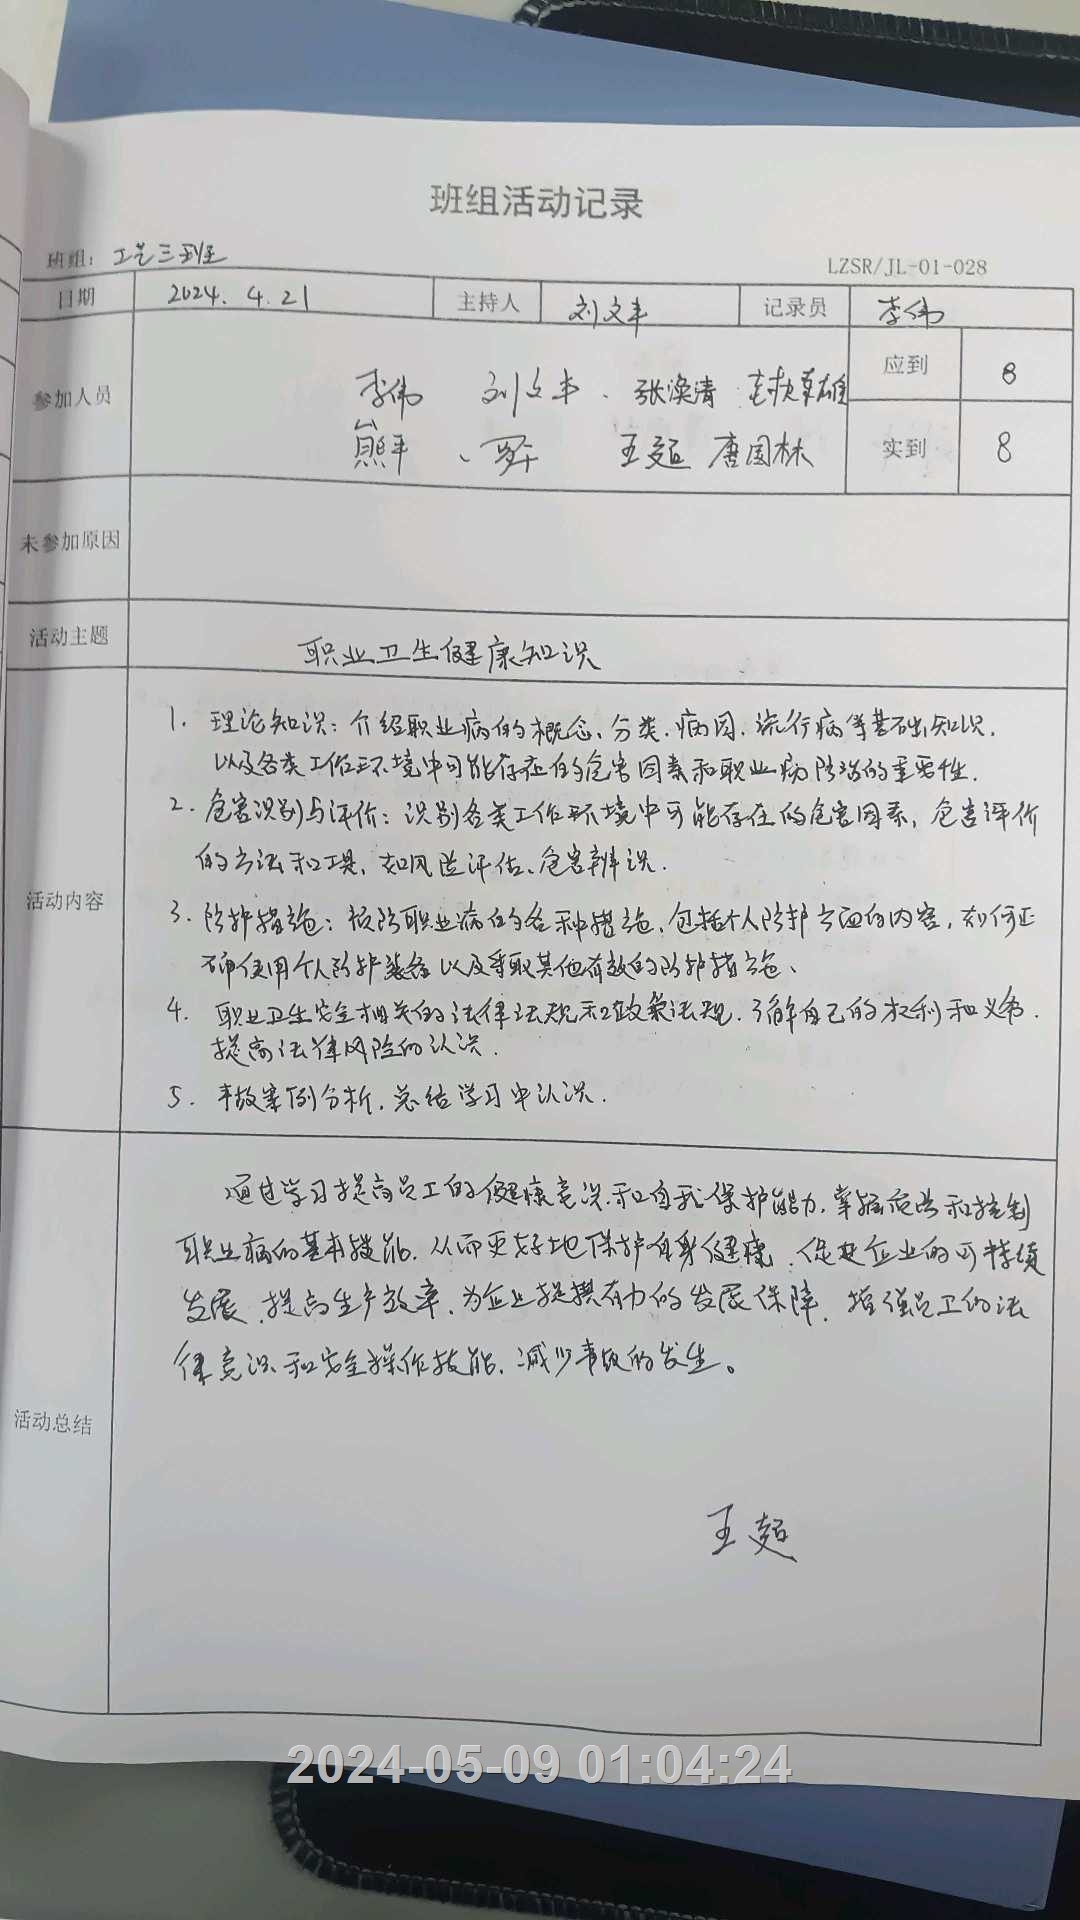 班组活动记录
班组：工艺三班
LZSR/JL-01-028
日期 2024.4.21 主持人 刘文丰 记录员 李伟
参加人员 李伟 刘文丰、张涣清 雄 应到 8
熊平、罗 王超 唐国林 实到 8
未参加原因
活动主题 职业卫生健康知识
活动内容
1. 理论知识：介绍职业病的概念、分类、病因、流行病等基础知识.
以及各类工作环境中可能存在的危害因素和职业病防治的重要性.
2. 危害识别与评价：识别各类工作环境中可能存在的危害因素，危害评价
的方法和工具，如风险评估、危害辨识.
3. 防护措施：预防职业病的各种措施，包括个人防护方面的内容，如何正
确使用个人防护装备以及采取其他有效的防护措施、
4. 职业卫生安全相关的法律法规和政策法规.了解自己的权利和义务.
提高法律风险的认识.
5. 事故案例分析，总结学习中认识.
活动总结
通过学习提高员工的健康意识和自我保护能力，掌握 和控制
职业病的基本技能，从而更好地保护自身健康，促进企业的可持续
发展，提高生产效率，为企业提供有力的发展保障，增强员工的法
律意识和安全操作技能，减少事故的发生。
王超
2024-05-09 01:04:24